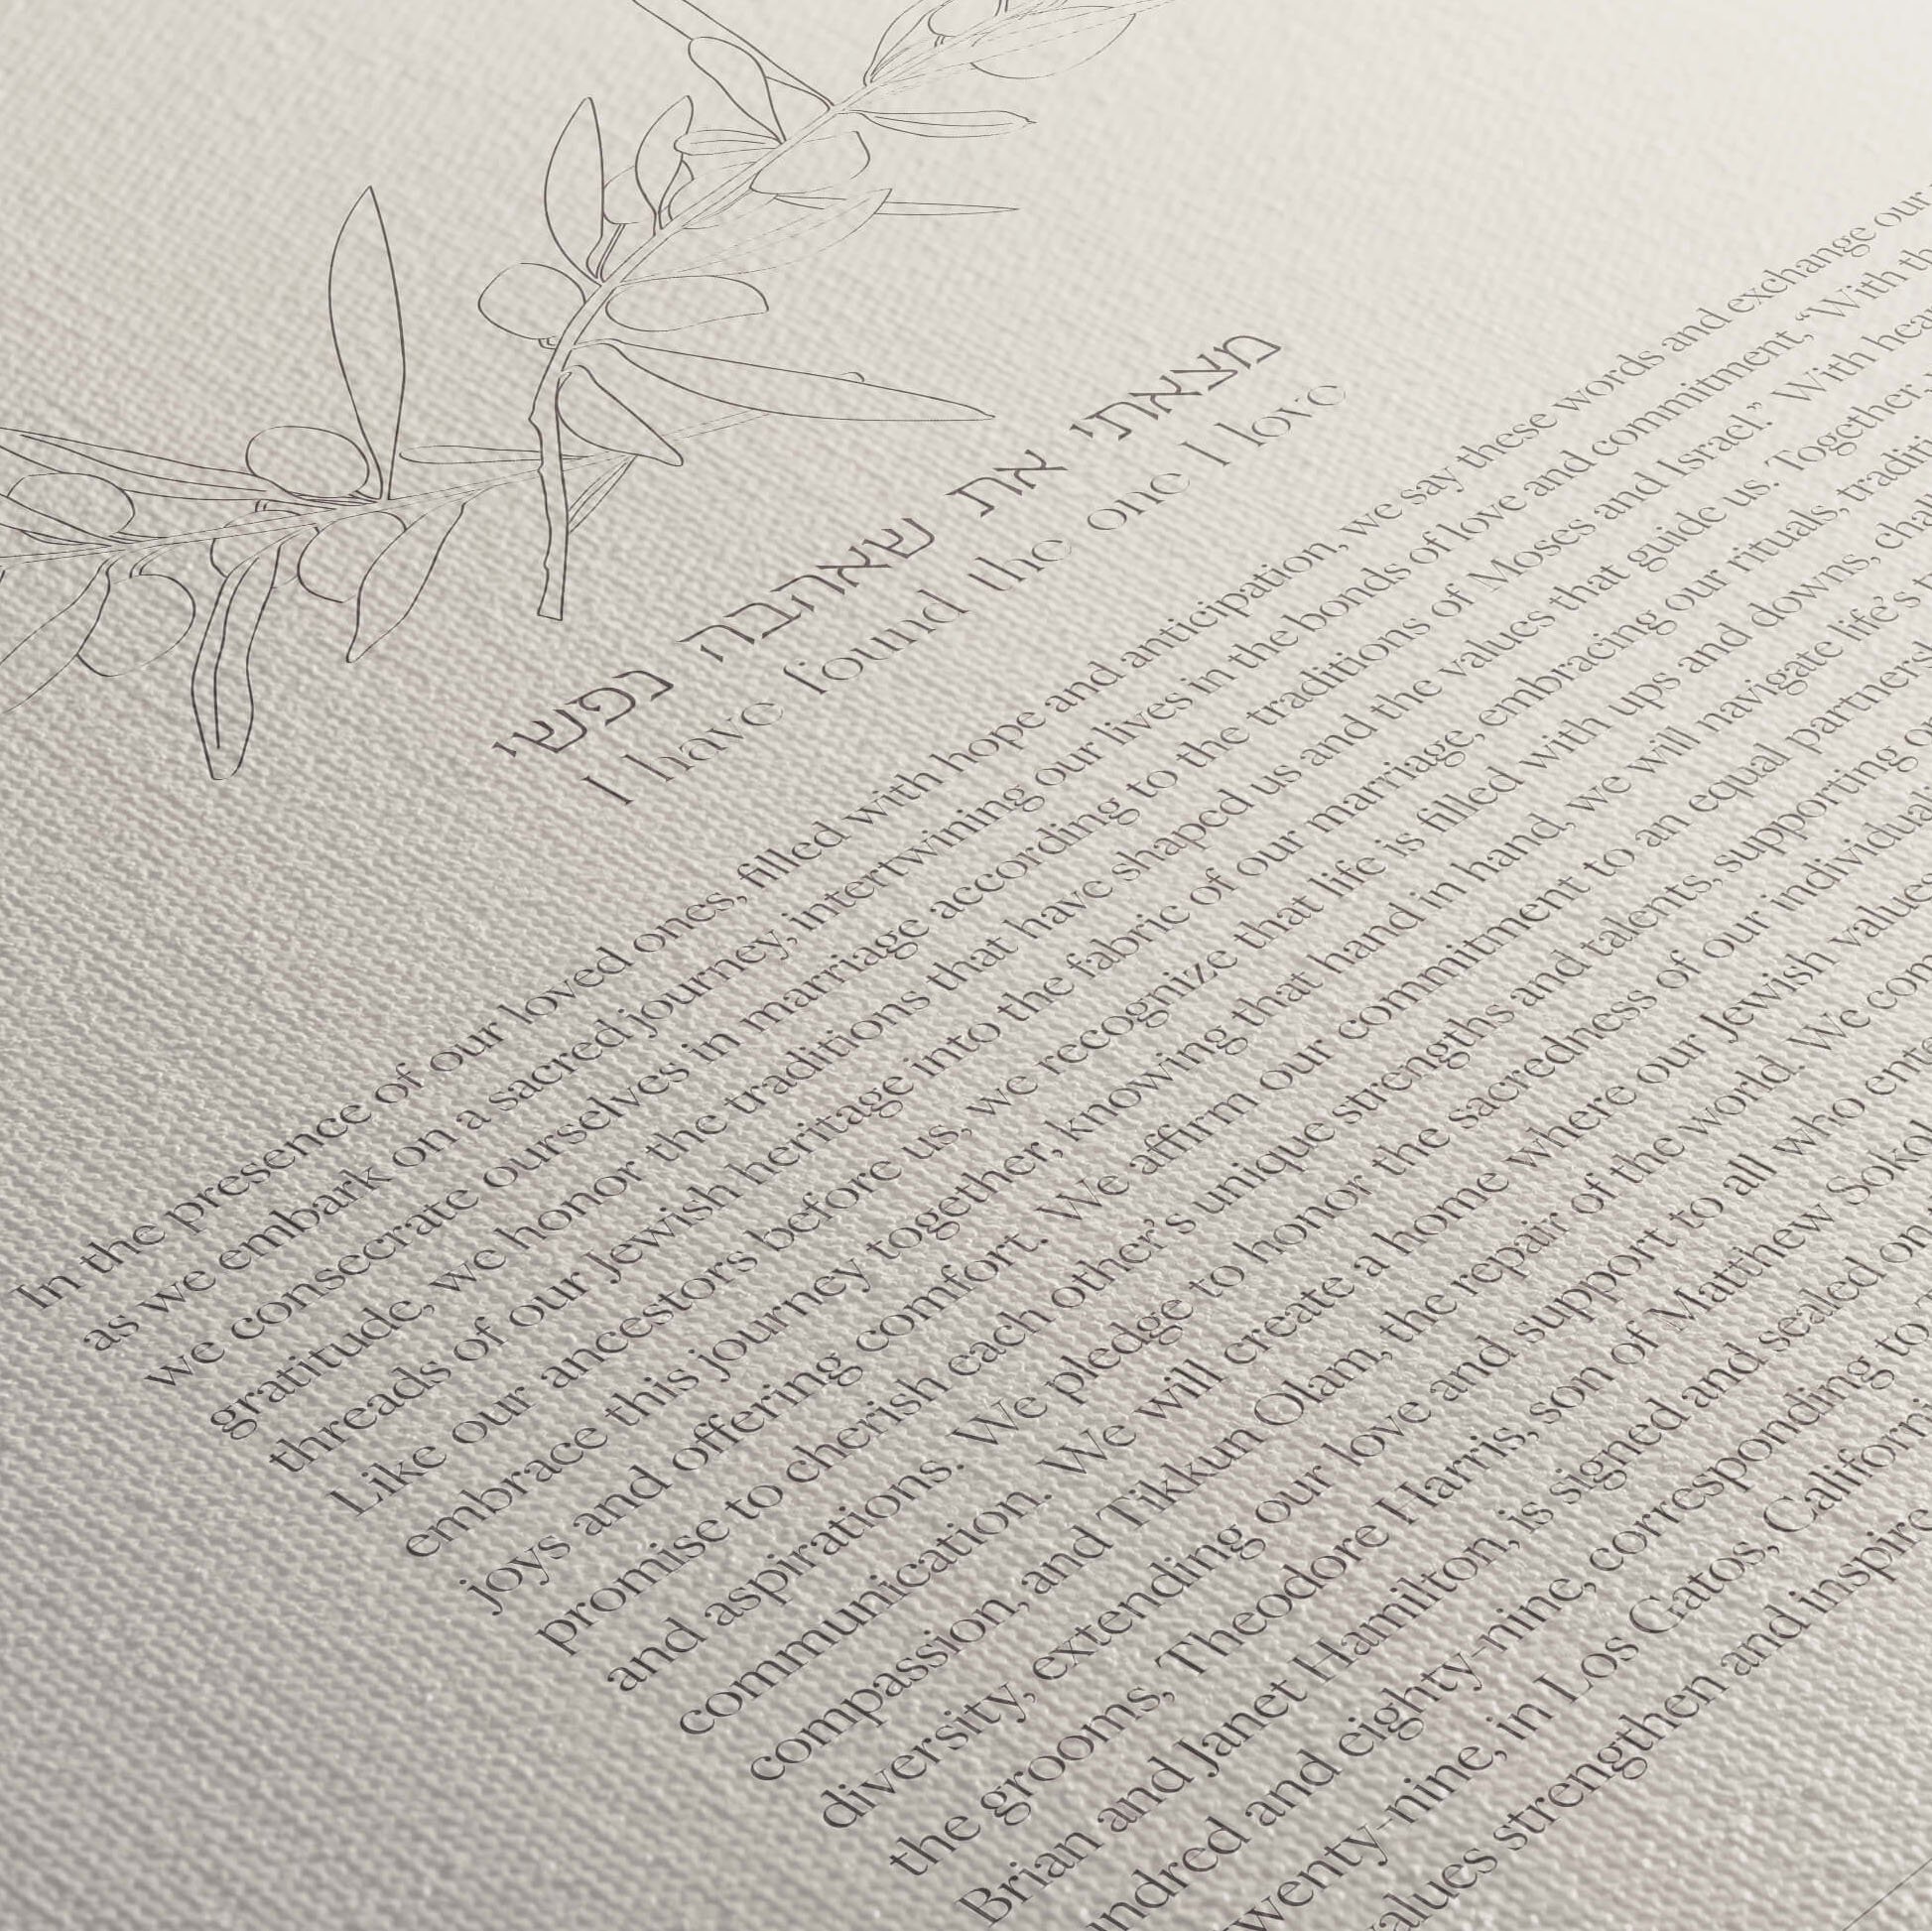 מצאתי את שאהבה נפשי
I have found the one I love
In the presence of our loved ones, filled with hope and anticipation, we say these words and exchange our
as we embark on a sacred journey, intertwining our lives in the bonds of love and commitment, “With
we consecrate ourselves in marriage according to the traditions of Moses and Israel.” With
gratitude, we honor the traditions that have shaped us and the values that guide us. Together,
threads of our Jewish heritage into the fabric of our marriage, embracing our rituals,
Like our ancestors before us, we recognize that life is filled with ups and downs,
embrace this journey together, knowing that hand in hand, we will navigate life’s
joys and offering comfort. We affirm our commitment to an equal
promise to cherish each other’s unique strengths and talents, supporting
and aspirations. We pledge to honor the sacredness of our individual
communication. We will create a home where our Jewish values
compassion, and Tikkun Olam, the repair of the world. We
diversity, extending our love and support to all who
the grooms, Theodore Harris, son of Matthew
Brian and Janet Hamilton, is signed and sealed on
and eighty-nine, corresponding to
in Los Gatos,
strengthen and